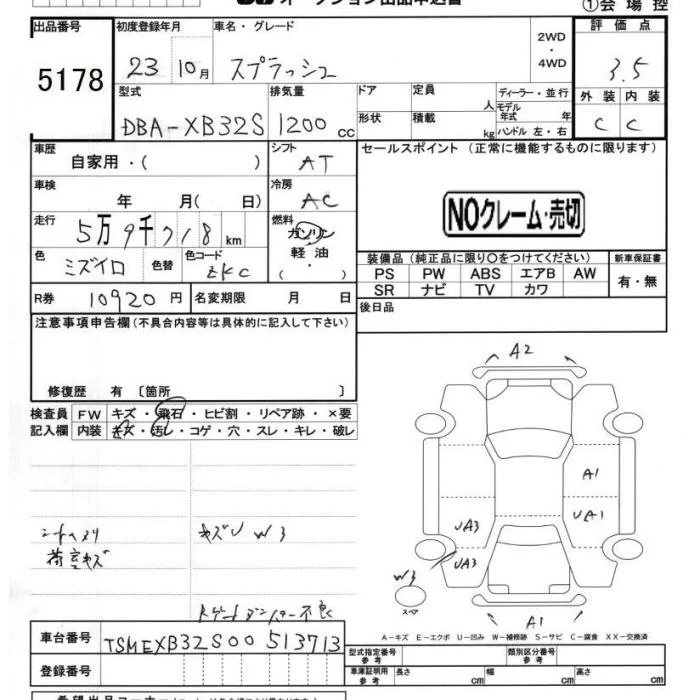 オークション出品申込書
①会場控
出品番号 初度登録年月 車名・グレード 2WD・4WD 評価点
5178 23 10月 スプラッシュ 3.5
型式 排気量 ドア 定員 人 ディーラー・並行 外装 内装
DBA-XB32S 1200 cc 形状 積載 kg モデル年式 年 ハンドル 左・右 C C
車歴 自家用・( ) シフト AT セールスポイント(正常に機能するものに限ります)
車検 年 月( 日) 冷房 AC
NOクレーム・売切
走行 5万9千718 km 燃料 ガソリン 軽油・( )
色 ミズイロ 色替 色コード ZKC
装備品(純正品に限り○をつけてください) 新車保証書
PS PW ABS エアB AW 有・無
SR ナビ TV カワ
R券 10920円 名変期限 月 日
後日品
注意事項申告欄(不具合内容等は具体的に記入して下さい)
修復歴 有〔箇所 〕
検査員 FW キズ・飛石・ヒビ割・リペア跡・×要
記入欄 内装 キズ・汚レ・コゲ・穴・スレ・キレ・破レ
A2
A1
UA1
UA3
UA3
W3
スペア
A1
シートヘタリ
荷室キズ
キズU W3
Rゲートダンパー不良
A-キズ E-エクボ U-凹み W-補修跡 S-サビ C-腐食 XX-交換済
車台番号 TSMEXB32S00513713
型式指定番号 参考 類別区分番号 参考
登録番号
車庫証明用 参考 長さ cm 幅 cm 高さ cm